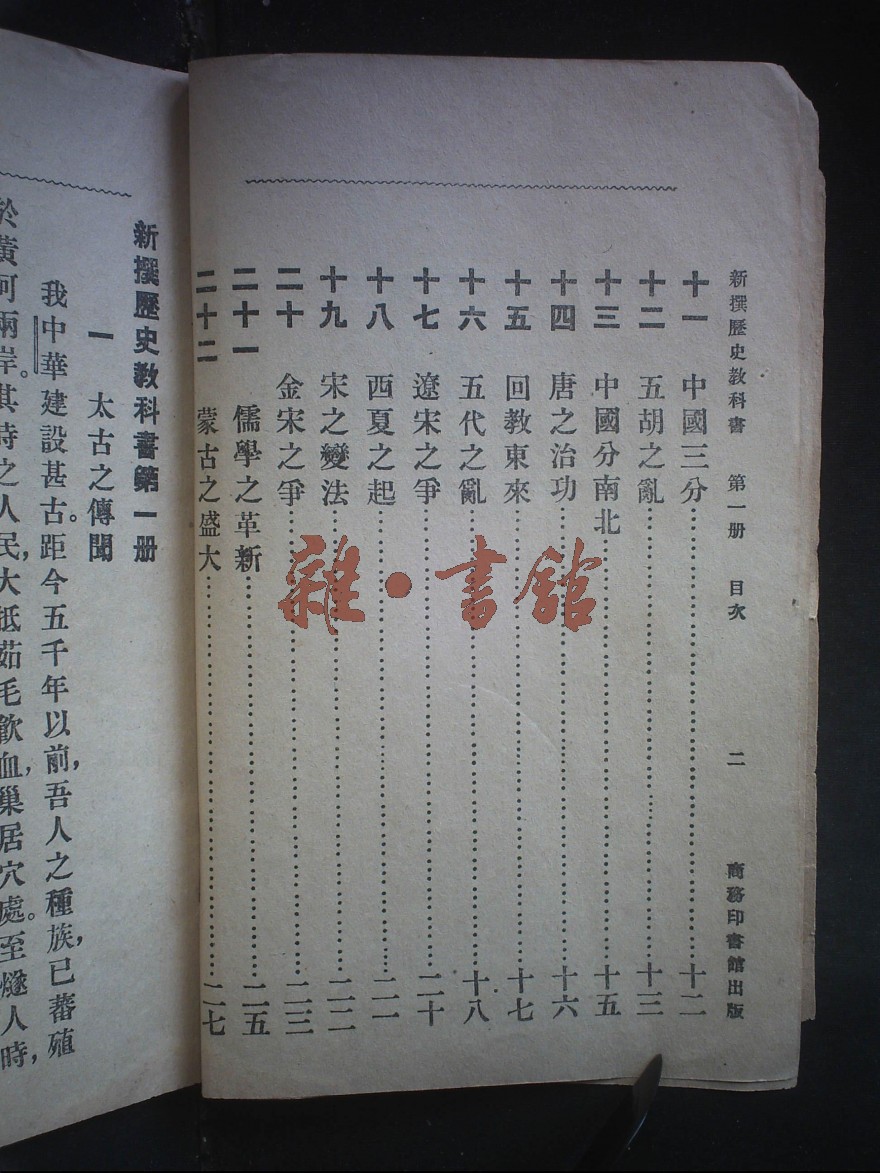 新撰歷史教科書 第一册 目次 二 商務印書館出版
十一 中國三分……十二
十二 五胡之亂……十三
十三 中國分南北……十五
十四 唐之治功……十六
十五 回教東來……十七
十六 五代之亂……十八
十七 遼宋之爭……二十
十八 西夏之起……二一
十九 宋之變法……二二
二十 金宋之爭……二三
二十一 儒學之革新……二五
二十二 蒙古之盛大……二七
雜·書館
新撰歷史教科書第一册
一 太古之傳聞
我中華建設甚古。距今五千年以前,吾人之種族,已蕃殖
於黃河兩岸。其時之人民,大抵茹毛飲血,巢居穴處。至燧人時,